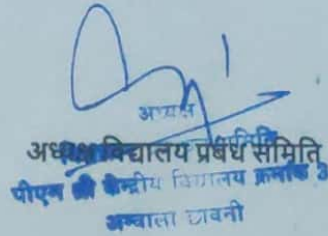 अध्यक्ष
अध्यक्ष विद्यालय प्रबंध समिति
पीएम श्री केन्द्रीय विद्यालय क्रमांक 3
अम्बाला छावनी